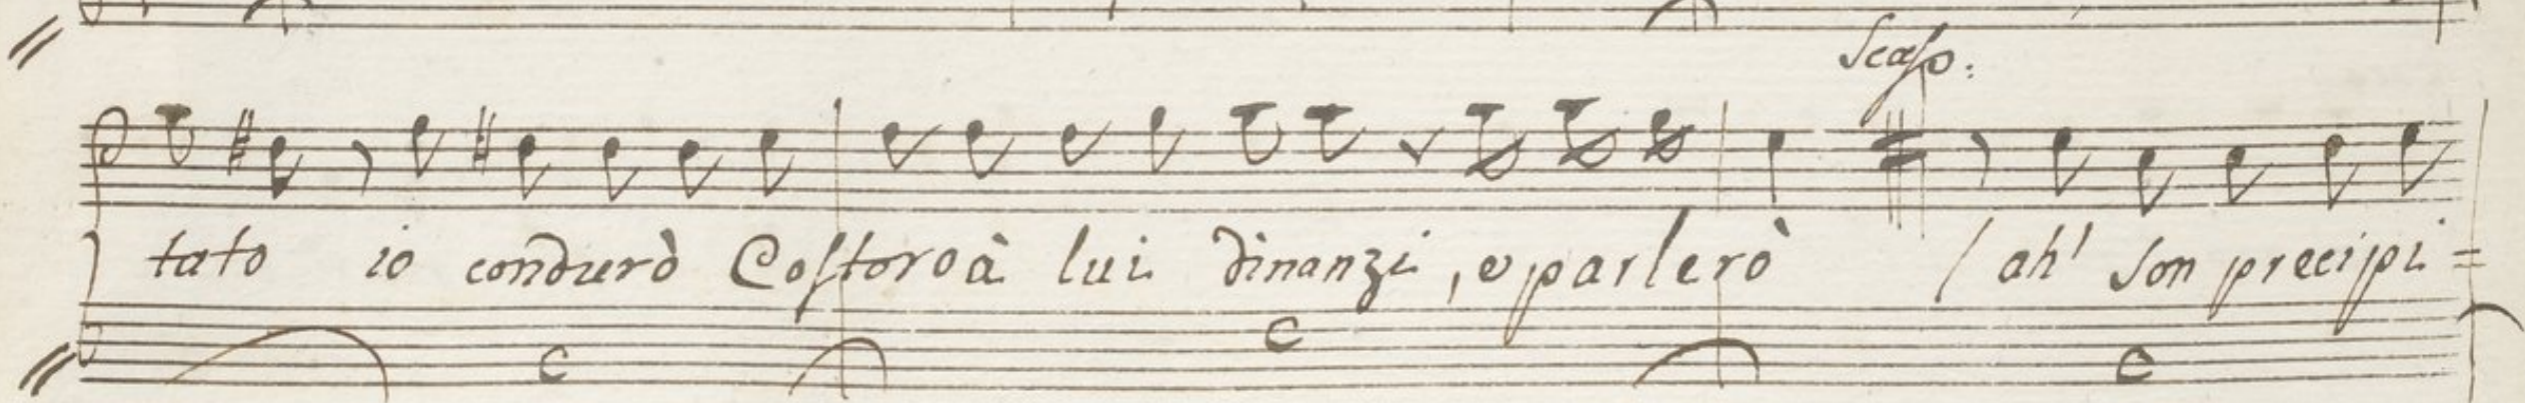 Scasp:
tato io condurò Costoro à lui dinanzi, e parlerò ( ah! son precipi=